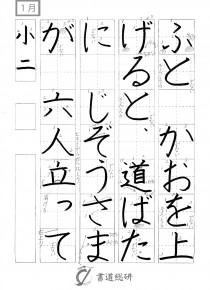 1月
ふと かおを上
げると、道ばた
に じぞうさま
が 六人立って
小二
書道総研